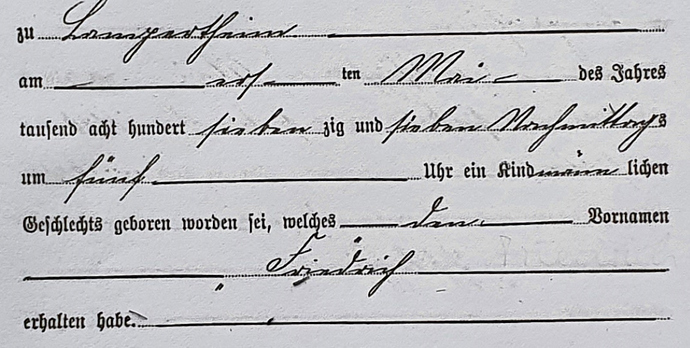 zu Lampertheim
am ersten Mai des Jahres
tausend acht hundert sieben zig und sieben Nachmittags
um fünf Uhr ein Kind männlichen
Geschlechts geboren worden sei, welches den Vornamen
Friedrich
erhalten habe.